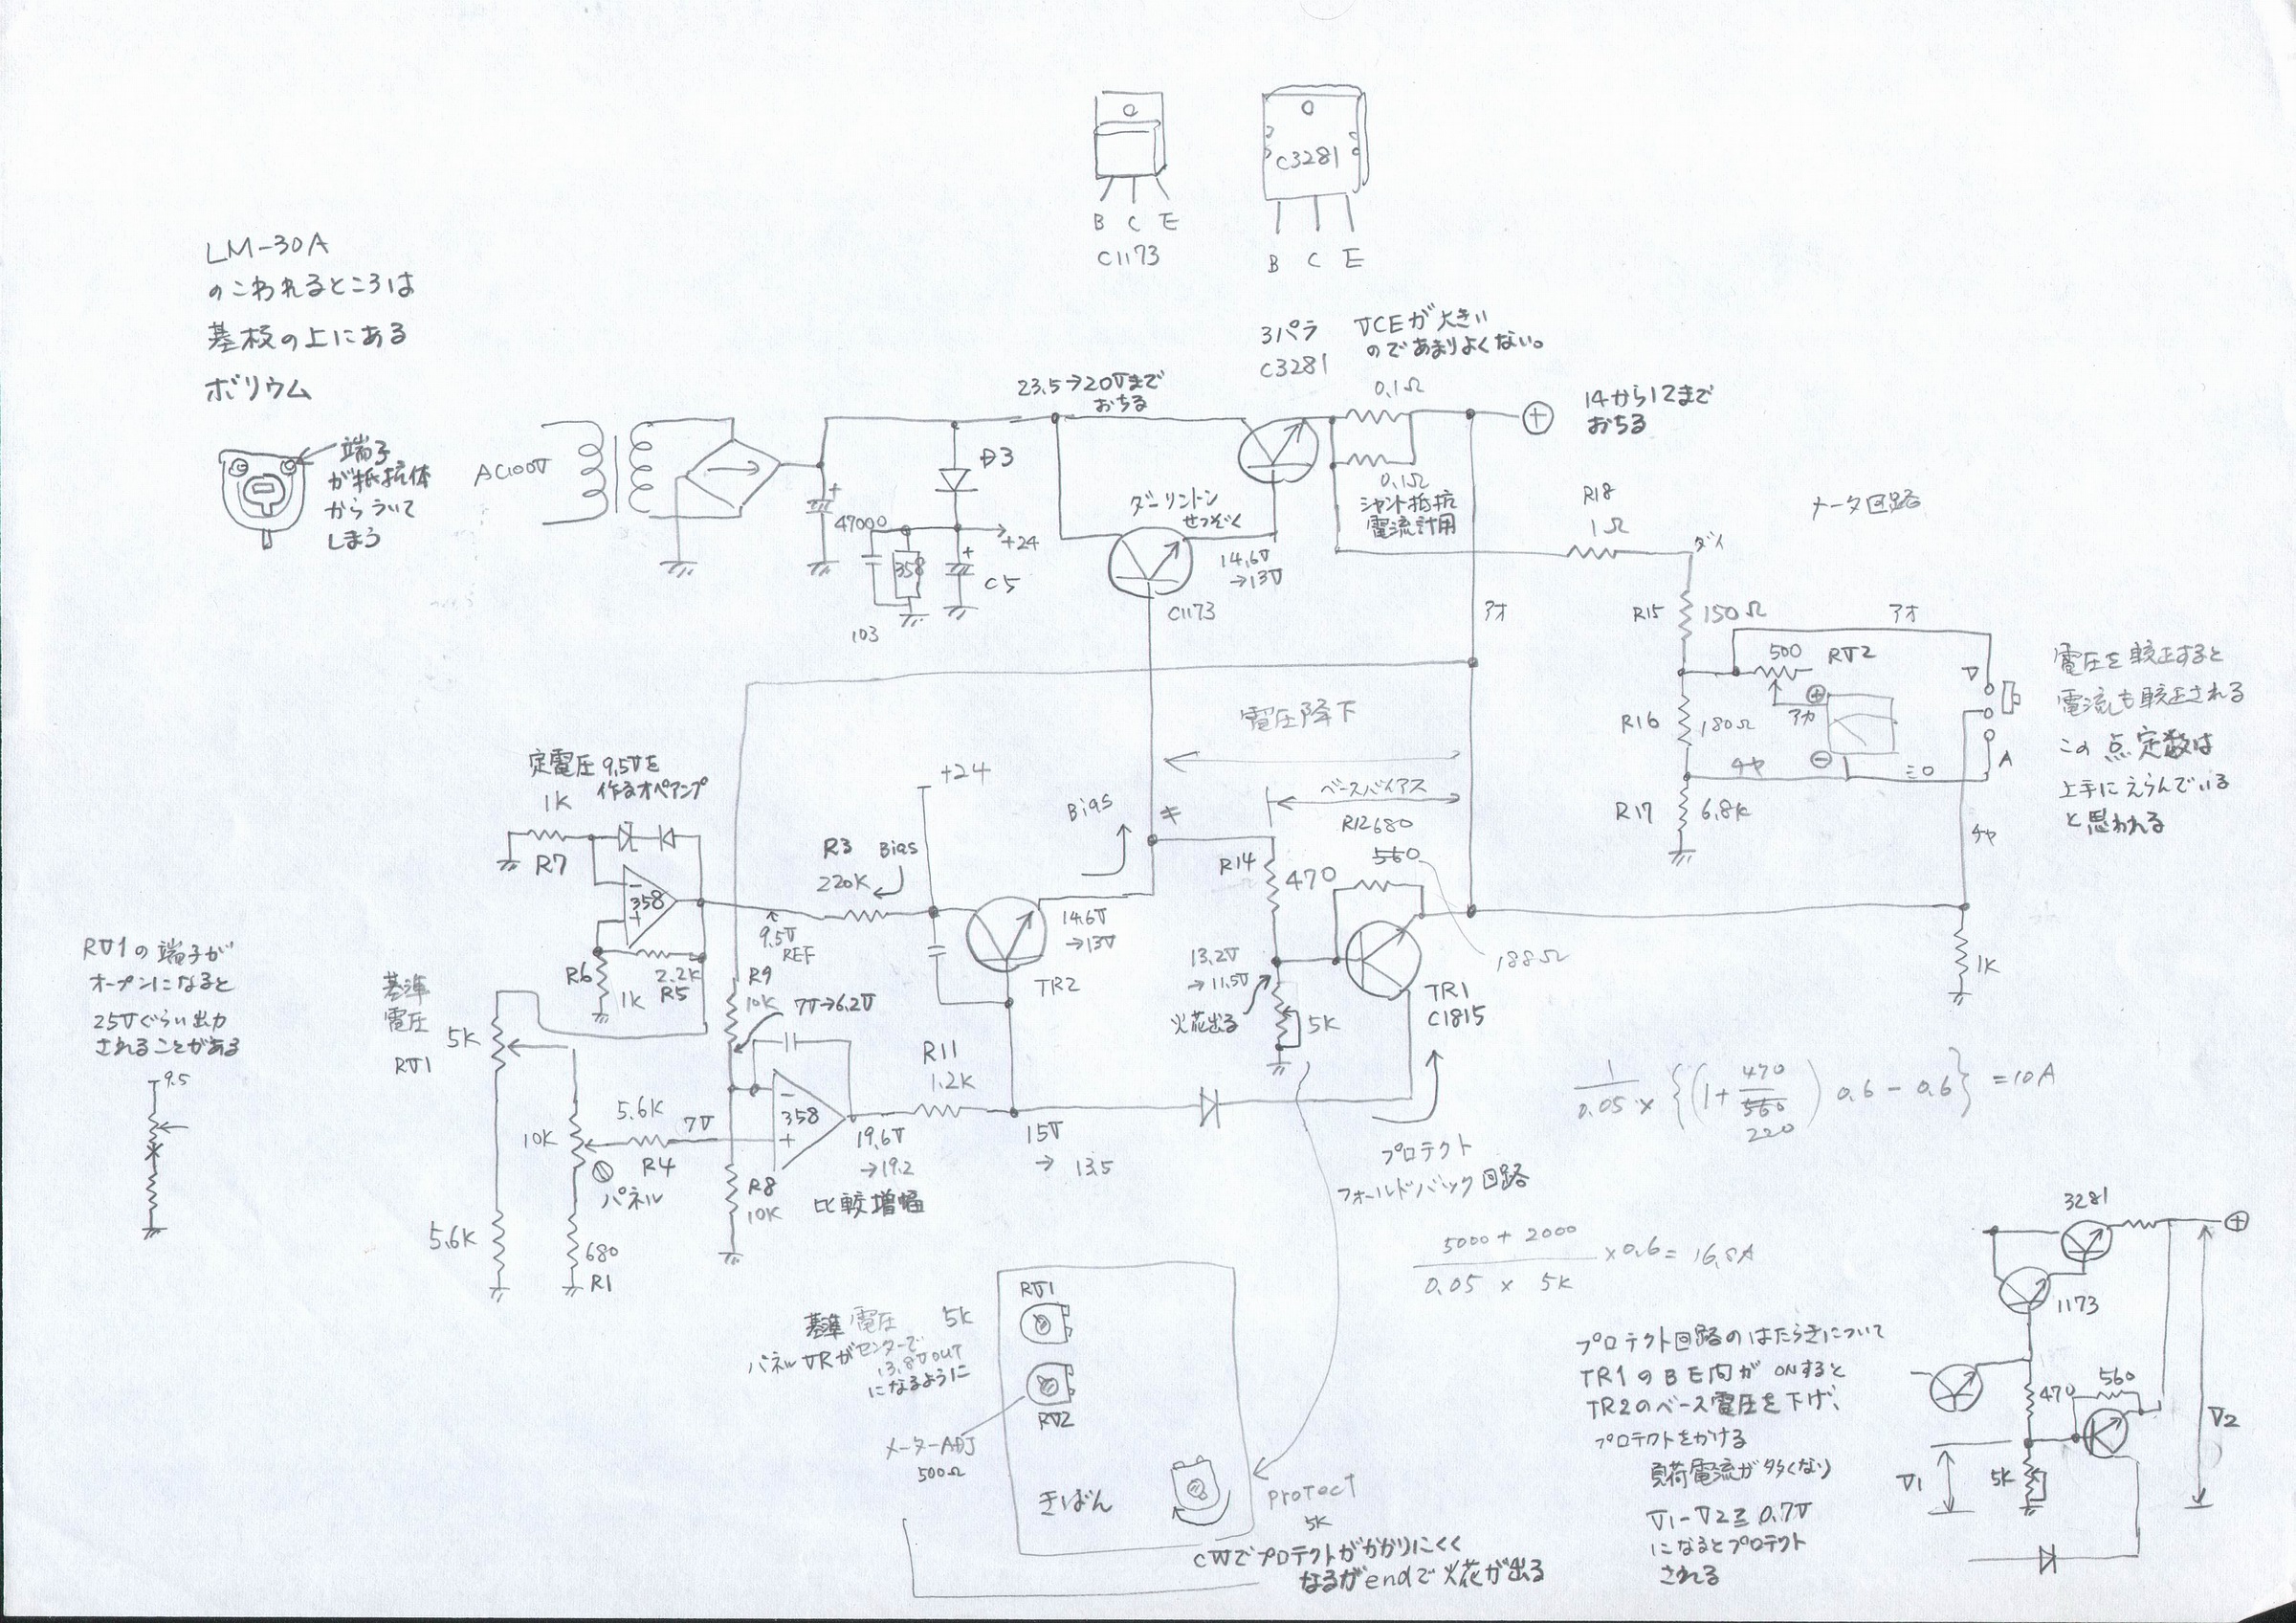 B C E
C1173
C3281
B C E
LM-30A
のこわれるところは
基板の上にある
ボリウム
端子
が抵抗体
からういて
しまう
3パラ
C3281
VCEが大きい
のであまりよくない。
0.1Ω
0.1Ω
シャント抵抗
電流計用
23.5→20Vまで
おちる
⊕
14から12まで
おちる
AC100V
D3
+
47000
358
+24
+
C5
103
ダーリントン
せつぞく
14.6V
→13V
C1173
R18
1Ω
ダイ
メータ回路
アオ
R15
150Ω
アオ
500
RV2
⊕
アカ
R16
180Ω
⊖
チャ
ミロ
V
A
R17
6.8K
チャ
1K
電圧を較正すると
電流も較正される
この点定数は
上手にえらんでいる
と思われる
電圧降下
ベースバイアス
R12 680
560
188Ω
定電圧9.5Vを
作るオペアンプ
1K
R7
-
358
+
R6
1K
2.2K
R5
R3
Bias
220K
9.5V
REF
+24
Bias
キ
14.6V
→13V
TR2
R14
470
13.2V
→11.5V
火花出る
5K
TR1
C1815
RV1の端子が
オープンになると
25Vぐらい出力
されることがある
9.5
基準
電圧
5K
RV1
R9
10K
7V→6.2V
10K
5.6K
R4
パネル
7V
-
358
+
R8
10K
R11
1.2K
19.6V
→19.2
比較増幅
15V
→13.5
5.6K
680
R1
プロテクト
フォールドバック回路
1/0.05 × {(1+470/560) 0.6-0.6} =10A
220
5000+2000/0.05×5K ×0.6=16.8A
RV1
RV2
基準電圧 5K
パネルVRがセンターで
13.8Vout
になるように
メーターADJ
500Ω
きばん
Protect
5K
CWでプロテクトがかかりにくく
なるがendで火花が出る
プロテクト回路のはたらきについて
TR1のBE間がONすると
TR2のベース電圧を下げ、
プロテクトをかける
負荷電流が多くなり
V1-V2≧0.7V
になるとプロテクト
される
3281
⊕
1173
560
470
5K
V1
V2